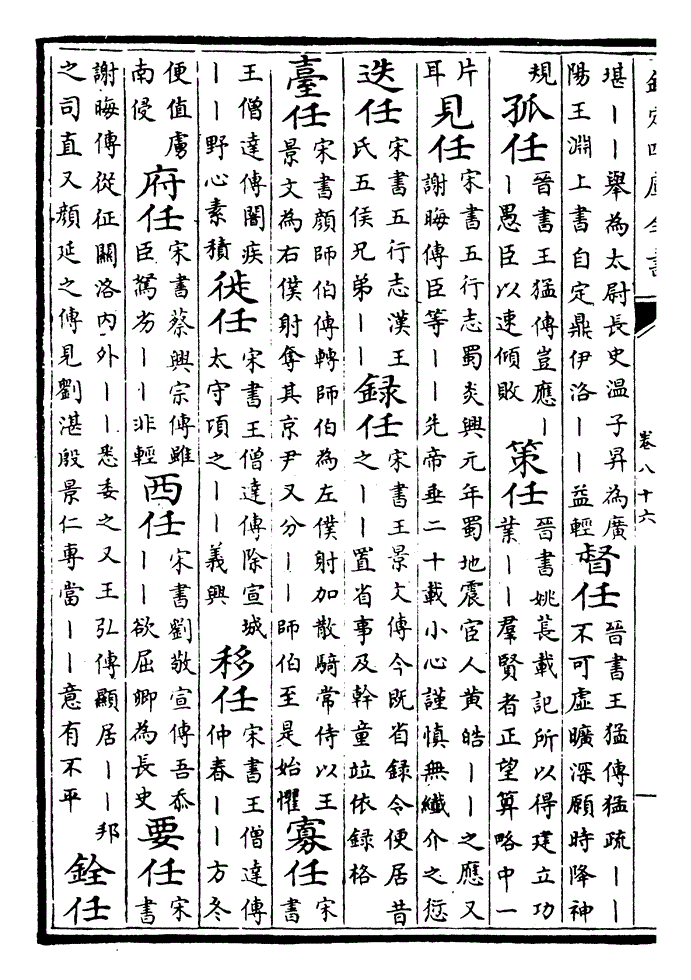 欽定四庫全書
卷八十六
堪丨丨舉為太尉長史溫子昇為廣
陽王淵上書自定鼎伊洛丨丨益輕
督任
晉書王猛傳猛疏丨丨
不可虛曠深願時降神
規
孤任
晉書王猛傳豈應丨
丨愚臣以速傾敗
策任
晉書姚萇載記所以得建立功
業丨丨羣賢者正望算略中一
片
耳
見任
宋書五行志蜀炎興元年蜀地震宦人黃皓丨丨之應又
謝晦傳臣等丨丨先帝垂二十載小心謹慎無纖介之愆
迭任
宋書五行志漢王
氏五侯兄弟丨丨
録任
宋書王景文傳今既省録令便居昔
之丨丨置省事及幹童竝依録格
臺任
宋書顔師伯傳轉師伯為左僕射加散騎常侍以王
景文為右僕射奪其京尹又分丨丨師伯至是始懼
寡任
宋
書
王僧達傳闇疾
丨丨野心素積
徙任
宋書王僧達傳除宣城
太守項之丨丨義興
移任
宋書王僧達傳
仲春丨丨方冬
便值虜
南侵
府任
宋書蔡興宗傳雖
臣駑劣丨丨非輕
西任
宋書劉敬宣傳吾忝
丨丨欲屈卿為長史
要任
宋
書
謝晦傳從征關洛内外丨丨悉委之又王弘傳顯居丨丨邦
之司直又顔延之傳見劉湛殷景仁專當丨丨意有不平
銓任